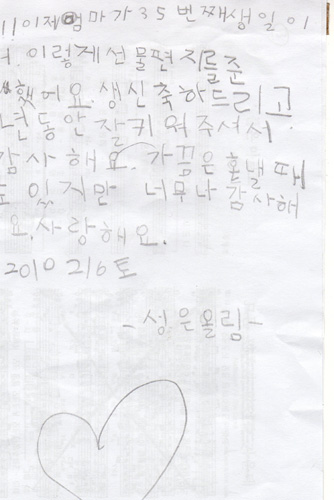 이제 엄마가 35번째생일이
이렇게선물편지를준
했어요. 생신축하드리고
년동안 잘키워주셔서
감사해요. 가끔은 혼낼때
도 있지만 너무나 감사해
요. 사랑해요.
2010 2/6 토
- 성은올림 -